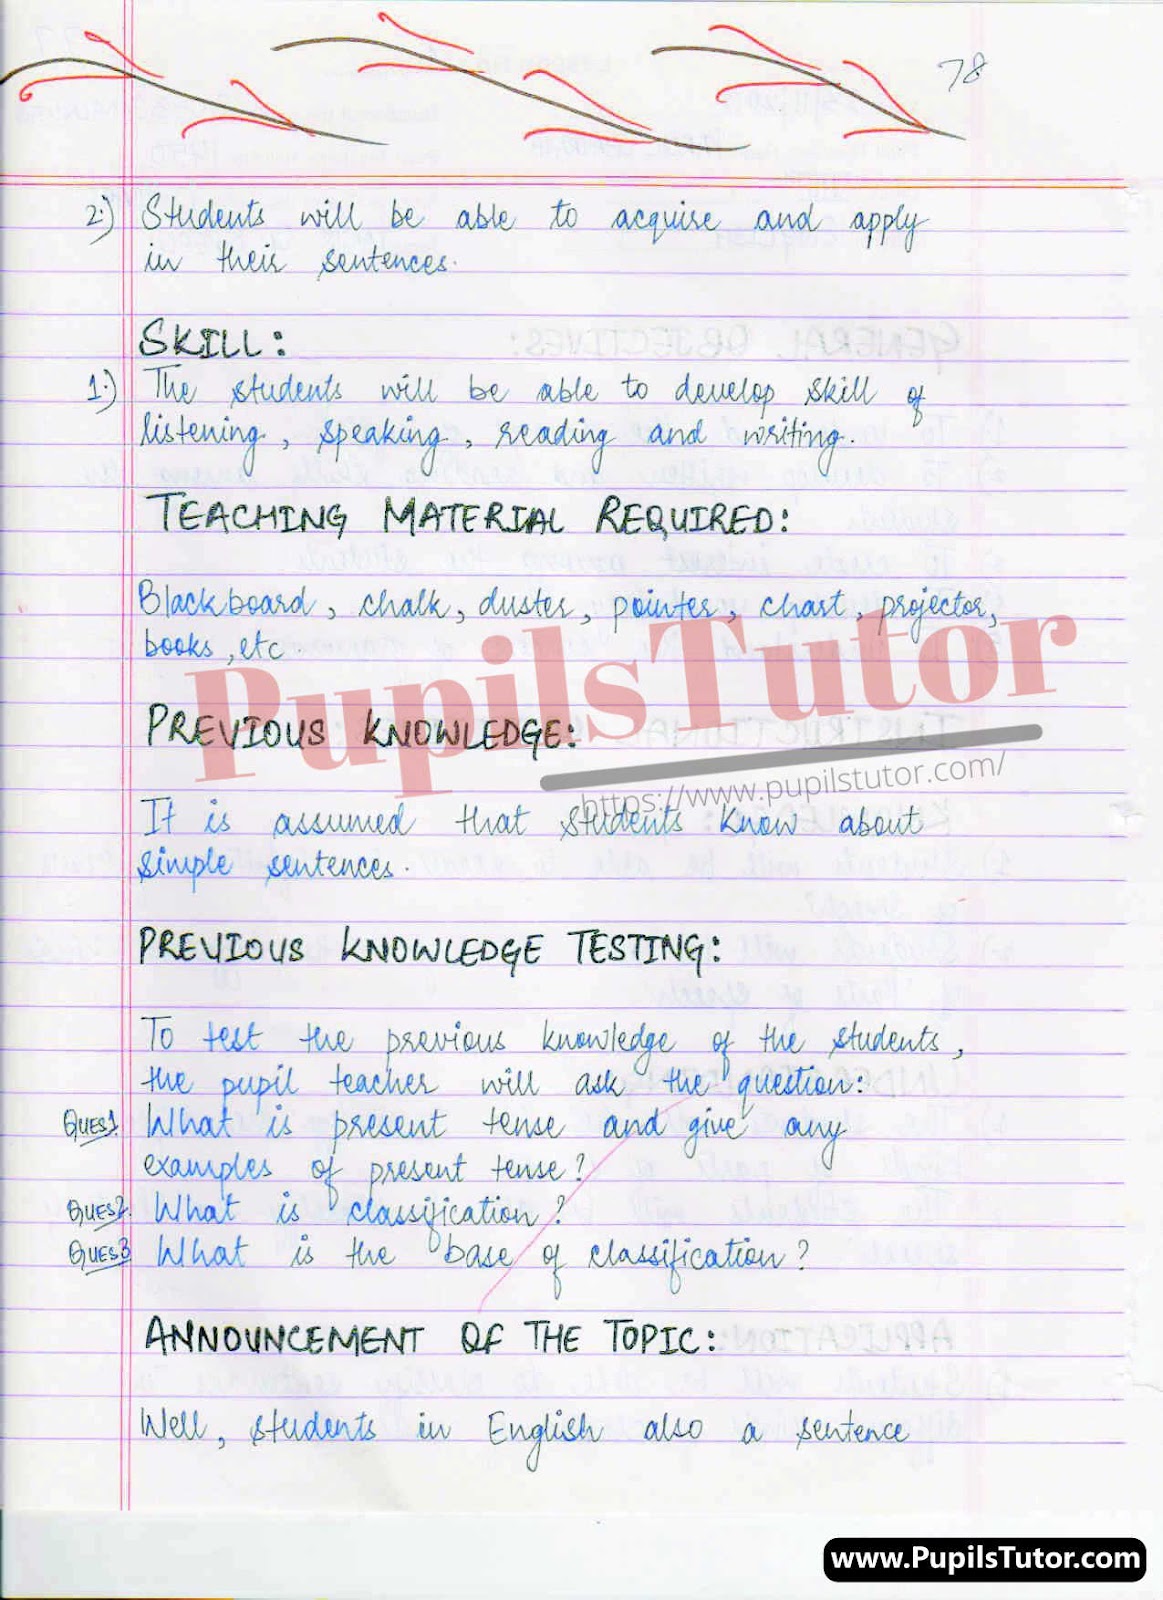 78
2.) Students will be able to acquire and apply
in their sentences.
SKILL:
1.) The students will be able to develop skill of
listening, speaking, reading and writing.
TEACHING MATERIAL REQUIRED:
Blackboard, chalk, duster, pointer, chart, projector,
books, etc.
PupilsTutor
PREVIOUS KNOWLEDGE:
https://www.pupilstutor.com/
It is assumed that students know about
simple sentences.
PREVIOUS KNOWLEDGE TESTING:
To test the previous knowledge of the students,
the pupil teacher will ask the question:
QUES1. What is present tense and give any
examples of present tense?
QUES2. What is classification?
QUES3 What is the base of classification?
ANNOUNCEMENT OF THE TOPIC:
Well, students in English also a sentence
www.PupilsTutor.com